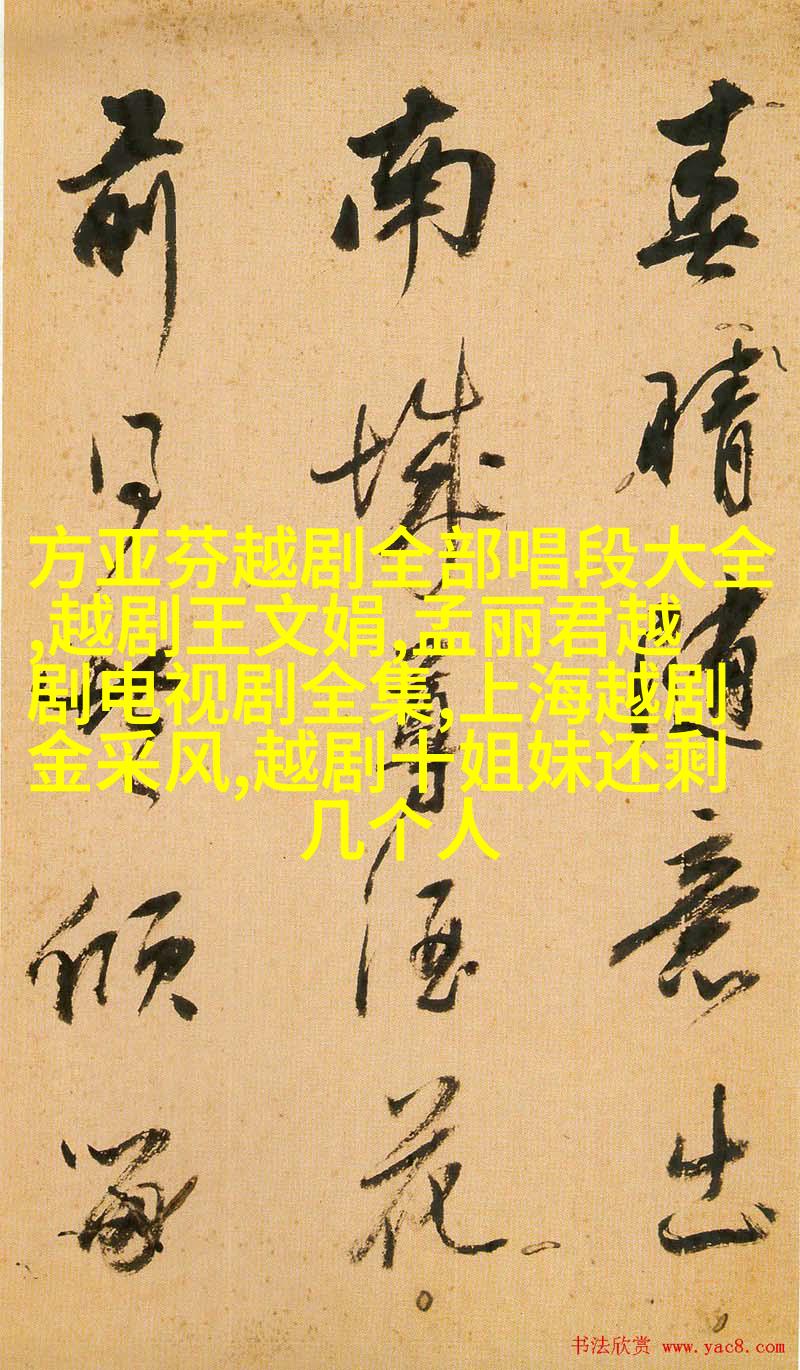 春晴隨意出
南城尊酒花
前傾
方亚芬越剧全部唱段大全
,越剧王文娟,孟丽君越
剧电视剧全集,上海越剧
金采风,越剧十姐妹还剩
几个人
书法欣赏 www.yac8.com